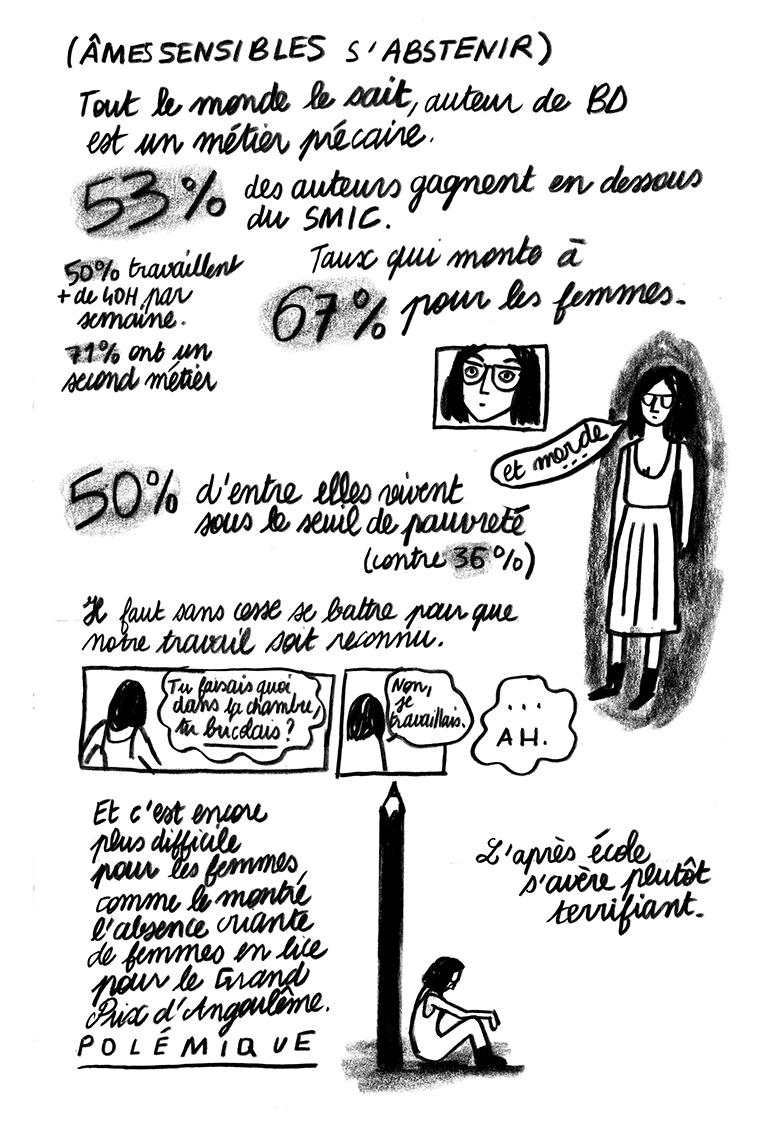 (ÂMES SENSIBLES S'ABSTENIR)
Tout le monde le sait, auteur de BD
est un métier précaire.
53% des auteurs gagnent en dessous
du SMIC.
50% travaillent
+ de 40H par
semaine.
71% ont un
second métier
Taux qui monte à
67% pour les femmes.
et merde
50% d'entre elles vivent
sous le seuil de pauvreté
(contre 36%)
Il faut sans cesse se battre pour que
notre travail soit reconnu.
Tu faisais quoi
dans ta chambre,
tu bricolais ?
Non,
je
travaillais.
...
AH.
Et c'est encore
plus difficile
pour les femmes,
comme le montre
l'absence criante
de femmes en lice
pour le Grand
Prix d'Angoulême.
POLÉMIQUE
L'après école
s'avère plutôt
terrifiant.